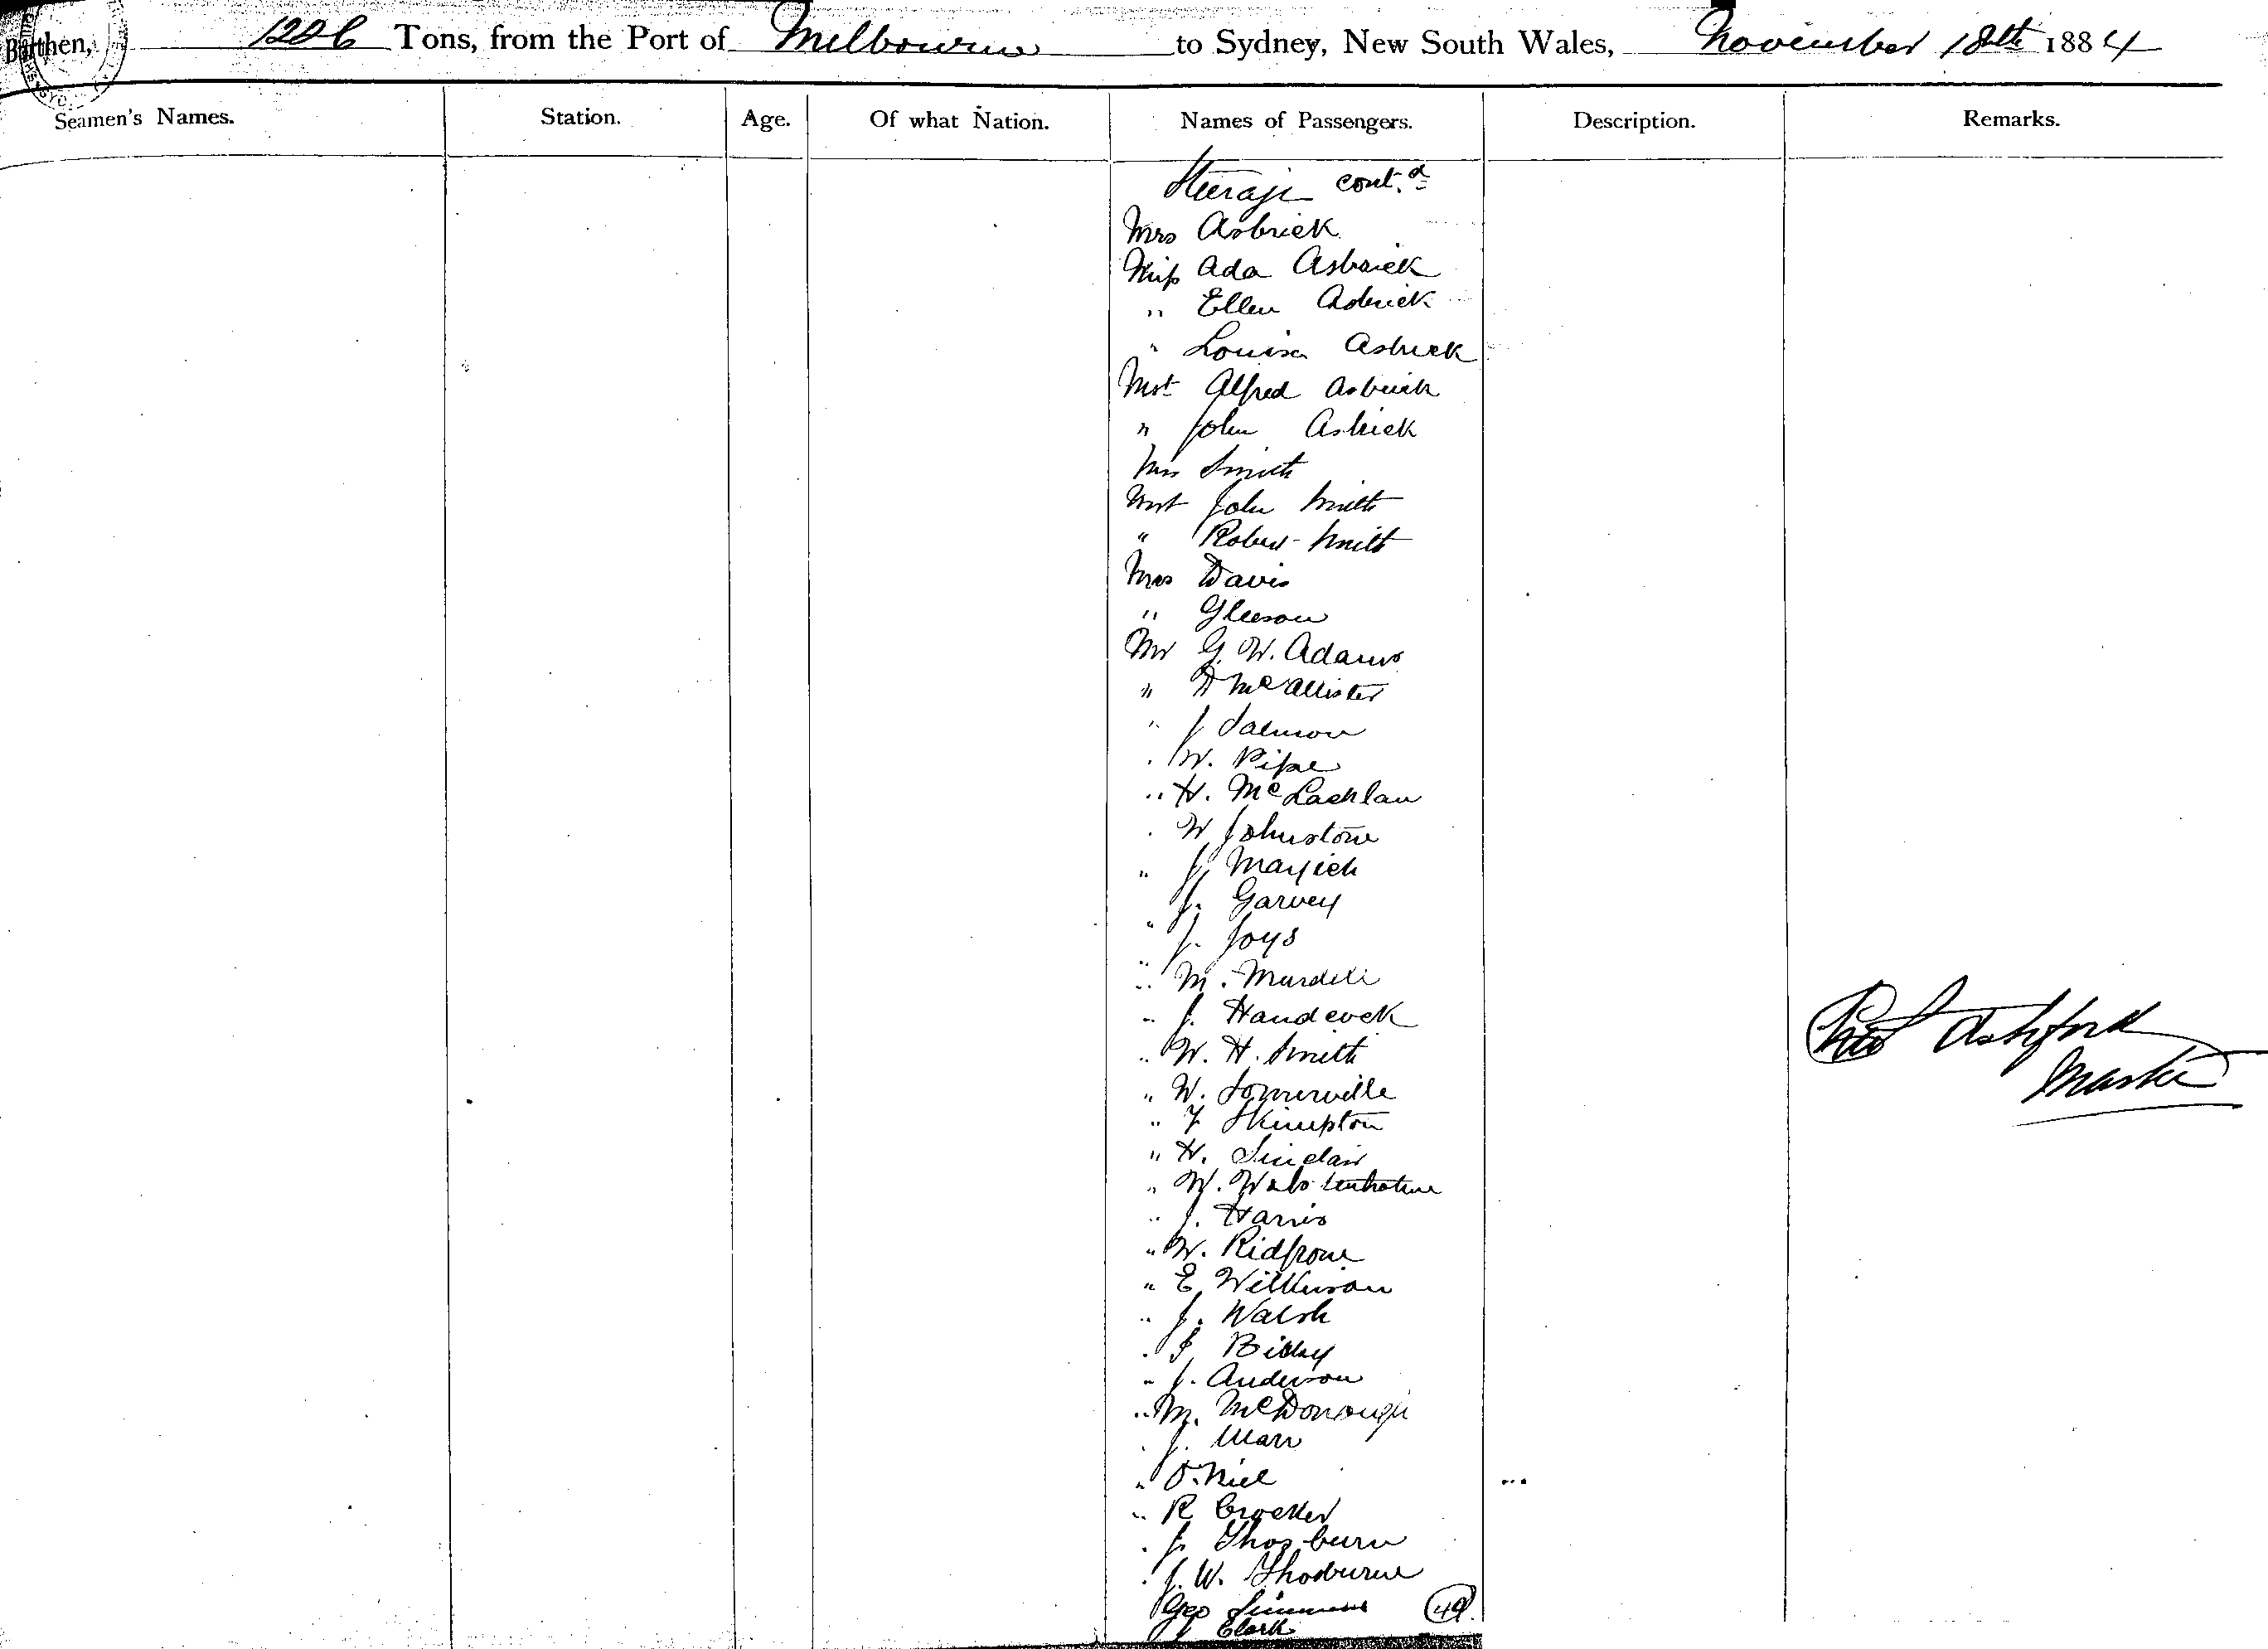 Burthen, 1206 Tons, from the Port of Melbourne to Sydney, New South Wales, November 18th 1884
Seamen's Names. Station. Age. Of what Nation. Names of Passengers. Description. Remarks.
Steerage cont.d
Mrs Asbrick
Miss Ada Asbrick
" Ellen Asbrick
" Louisa Asbrick
Mst Alfred Asbrick
" John Asbrick
Mrs Smith
Mst John Smith
" Robert Smith
Mrs Davis
" Gleeson
Mr G. W. Adams
" D McAllister
" J Salmon
" W. Pipe
" H. McLachlan
" W Johnstone
" J.
" J. Garvey
" J. Joys
" M.
" J.
" W. H. Smith
" W. Somerville
" F Skimpton
" H. Sinclair
" W.
" J. Harris
" W.
" E. Wilkinson
" J. Walsh
" J.
" J. Anderson
" M. McDonough
" J. Marr
" O'Niel
" R Crocker
" J. Thosburn
" J. W. Thosburne
Geo Simmons
J Clark
49
Ashford
Master